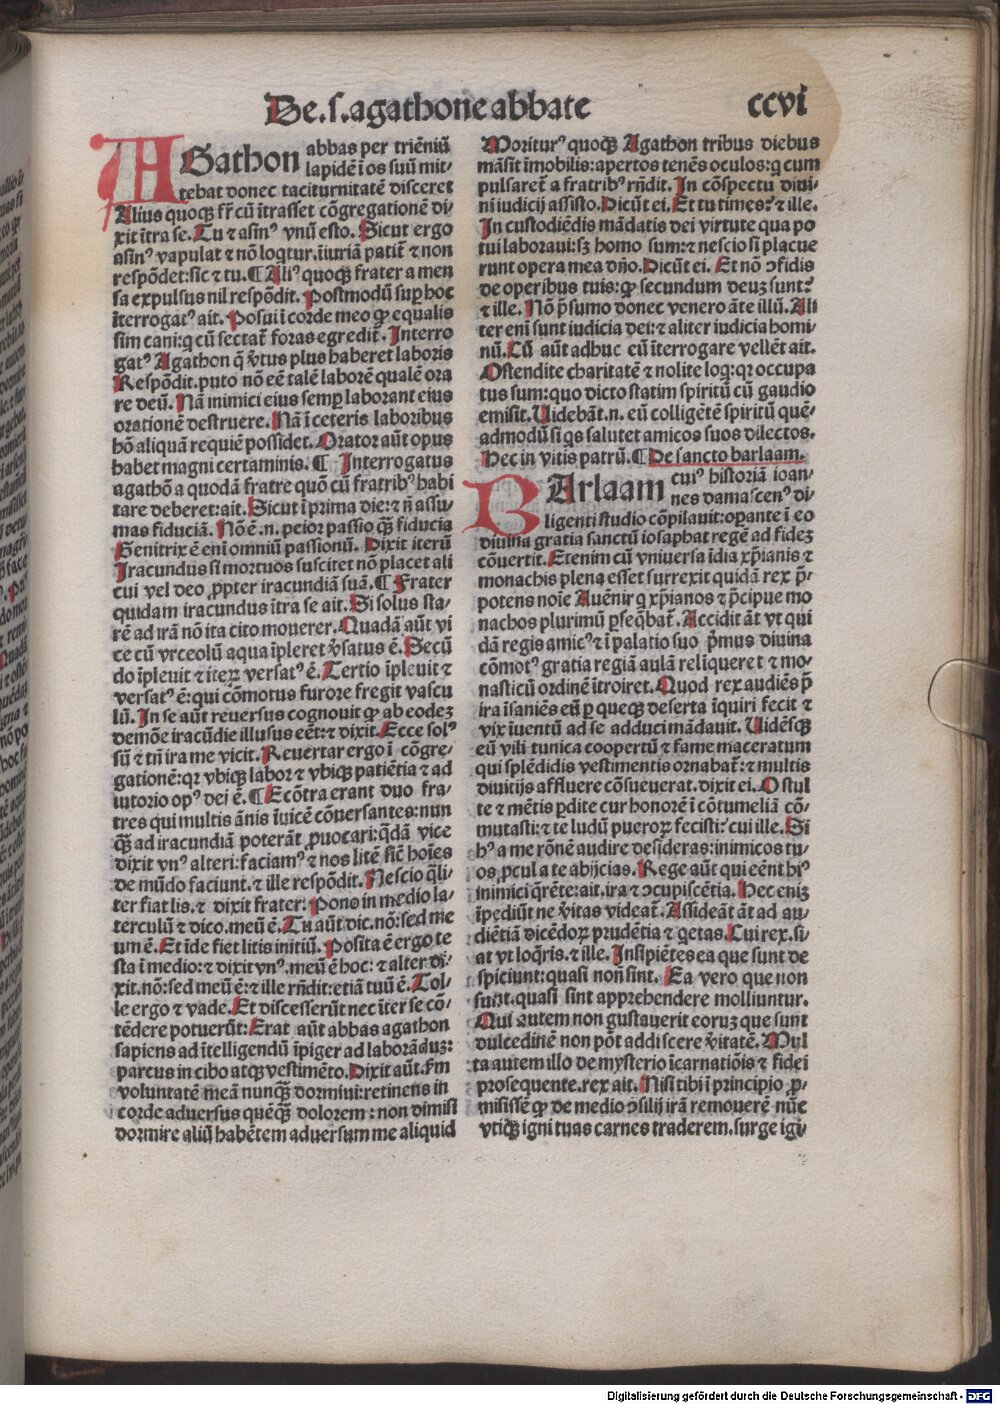 De.s.agathone abbate ccvi
AGathon abbas per triēniū
lapidē ī os suū mit⸗
tebat donec taciturnitatē disceret
Alius quoqꝫ fr̄ cū ītrasset cōgregationē di⸗
xit ītra se. Tu ⁊ asinꝰ vnū esto. Sicut ergo
asinꝰ vapulat ⁊ nō loq̄tur. iiuriā patit̄ ⁊ non
respōdet: sic ⁊ tu. ¶ Aliꝰ quoqꝫ frater a men
sa expulsus nil respōdit. Postmodū suꝑ hoc
īterrogatꝰ ait. Posui ī corde meo ꝙ equalis
sim cani: q cū sectat̄ foras egredit̄. Interro
gatꝰ Agathon q̄ v̄tus plus haberet laboris
Respōdit. puto nō eē talē laborē qualē ora
re deū. Nā inimici eius semꝑ laborant eius
orationē destruere. Nā ī ceteris laboribus
hō aliquā requiē possidet. Orator aūt opus
habet magni certaminis. ¶ Interrogatus
agathō a quodā fratre quō cū fratribꝰ habi
tare deberet: ait. Sicut ī prima die: ⁊ n̄ assu⸗
mas fiduciā. Nō ē.n. peior passio qꝫ fiducia
Genitrix ē eni omniū passionū. Dixit iterū
Iracundus si mortuos suscitet nō placet ali
cui vel deo ꝓpter iracundiā suā. ¶ Frater
quidam iracundus ītra se ait. Si solus sta⸗
rē ad irā nō ita cito mouerer. Quadā aūt vi
ce cū vrceolū aqua īpleret v̄satus ē. Secū
do īpleuit ⁊ iteꝝ versatꝰ ē. Tertio īpleuit ⁊
versatꝰ ē: qui cōmotus furore fregit vascu
lū. In se aūt reuersus cognouit ꝙ ab eodeꝫ
demōe iracūdie illusus eēt: ⁊ dixit. Ecce solꝰ
sū ⁊ tn̄ ira me vicit. Reuertar ergo ī cōgre⸗
gationē: qꝛ vbiqꝫ labor ⁊ vbiqꝫ patiētia ⁊ ad
iutorio opꝰ dei ē. ¶ Ecōtra erant duo fra⸗
tres qui multis ānis īuicē cōuersantes: nun
qꝫ ad iracundiā poterāt ꝓuocari: q̄dā vice
dixit vnꝰ alteri: faciamꝰ ⁊ nos litē sic̄ hoīes
de mūdo faciunt. ⁊ ille respōdit. Nescio q̄li⸗
ter fiat lis. ⁊ dixit frater: Pono in medio la⸗
terculū ⁊ dico. meū ē. Tu aūt dic. nō: sed me
um ē. Et īde fiet litis initiū. Posita ē ergo te
sta ī medio: ⁊ dixit vnꝰ. meū ē hoc: ⁊ alter di⸗
xit. nō: sed meū ē: ⁊ ille rn̄dit: etiā tuū ē. Tol⸗
le ergo ⁊ vade. Et discesserūt nec īter se cō⸗
tēdere potuerūt: Erat aūt abbas agathon
sapiens ad ītelligendū īpiger ad laborāduꝫ:
parcus in cibo atqꝫ vestimēto. Dixit aūt. s̄m
voluntatē meā nunqꝫ dormiui: retinens in
corde aduersus quēqꝫ dolorem: non dimisi
dormire aliū habētem aduersum me aliquid
Moriturꝰ quoqꝫ Agathon tribus diebus
māsit īmobilis: apertos tenēs oculos: q cum
pulsaret̄ a fratribꝰ rn̄dit. In cōspectu diui⸗
ni iudicij assisto. Dicūt ei. Et tu times? ⁊ ille.
In custodiēdis mādatis dei virtute qua po
tui laboraui: sꝫ homo sum: ⁊ nescio si placue
runt opera mea dn̄o. Dicūt ei. Et nō ↄfidis
de operibus tuis: ꝙ secundum deuꝫ sunt?
⁊ ille. Nō p̄sumo donec venero āte illū. Ali
ter eni sunt iudicia dei: ⁊ aliter iudicia homi⸗
nū. Cū aūt adhuc cū īterrogare vellēt ait.
Ostendite charitatē ⁊ nolite loq: qꝛ occupa
tus sum: quo dicto statim spiritū cū gaudio
emisit. Uidebāt.n. eū colligētē spiritū quē⸗
admodū si qs salutet amicos suos dilectos.
Hec in vitis patrū. ¶ De sancto barlaam.
BArlaam cuiꝰ historiā ioan⸗
nes damascenꝰ di⸗
ligenti studio cōpilauit: oꝑante ī eo
diuina gratia sanctū iosaphat regē ad fideꝫ
cōuertit. Etenim cū vniuersa īdia xp̄ianis ⁊
monachis plena esset surrexit quidā rex p̄⸗
potens noīe Auēnir q xp̄ianos ⁊ p̄cipue mo
nachos plurimū ꝑseq̄bat̄. Accidit āt vt qui
dā regis amicꝰ ⁊ ī palatio suo p̄mus diuina
cōmotꝰ gratia regiā aulā reliqueret ⁊ mo⸗
nasticū ordinē ītroiret. Quod rex audiēs p̄
ira īsaniēs eū ꝑ queqꝫ deserta īquiri fecit ⁊
vix iuentū ad se adduci mādauit. Uidēsqꝫ
eū vili tunica coopertū ⁊ fame maceratum
qui splēdidis vestimentis ornabat̄: ⁊ multis
diuitijs affluere cōsueuerat. dixit ei. O stul
te ⁊ mētis ꝑdite cur honorē ī cōtumeliā cō⸗
mutasti: ⁊ te ludū pueroꝝ fecisti? cui ille. Si
hꝰ a me rōnē audire desideras: inimicos tu⸗
os ꝓcul a te abijcias. Rege aūt qui eēnt hiꝰ
inimici q̄rēte: ait. ira ⁊ ↄcupiscētia. Hec eniꝫ
īpediūt ne v̄itas videat̄. Assideāt āt ad au⸗
diētiā dicēdoꝝ prudētia ⁊ eq̄tas. Cui rex. fi⸗
at vt loq̄ris. ⁊ ille. Insipiētes ea que sunt de
spiciunt: quasi non sint. Ea vero que non
sunt. quasi sint apprehendere moliuntur.
Qui autem non gustauerit eoruꝫ que sunt
dulcedinē non pōt addiscere v̄itatē. Mul
ta autem illo de mysterio īcarnatiōis ⁊ fidei
prosequente. rex ait. Nisi tibi ī principio ꝓ⸗
misissē ꝙ de medio ↄsilij irā remouerē nūc
vtiqꝫ igni tuas carnes traderem. surge igi⸗
Digitalisierung gefördert durch die Deutsche Forschungsgemeinschaft - DFG